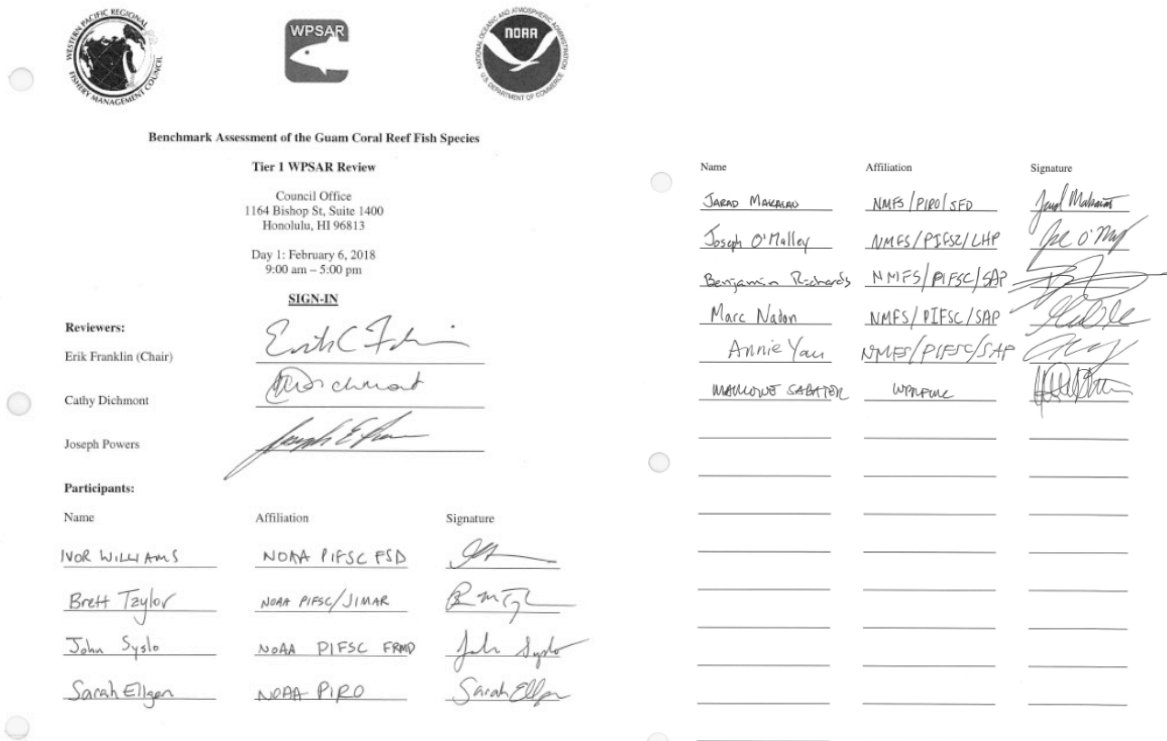 WESTERN PACIFIC REGIONAL
FISHERY MANAGEMENT COUNCIL
WPSAR
NATIONAL OCEANIC AND ATMOSPHERIC ADMINISTRATION
NOAA
U.S. DEPARTMENT OF COMMERCE
Benchmark Assessment of the Guam Coral Reef Fish Species
Tier 1 WPSAR Review
Council Office
1164 Bishop St, Suite 1400
Honolulu, HI 96813
Day 1: February 6, 2018
9:00 am – 5:00 pm
SIGN-IN
Reviewers:
Erik Franklin (Chair)
Cathy Dichmont
Joseph Powers
Participants:
Name Affiliation Signature
IVOR WILLIAMS NOAA PIFSC ESD
Brett Taylor NOAA PIFSC/JIMAR
John Syslo NOAA PIFSC FRMD John Syslo
Sarah Ellgen NOAA PIRO Sarah Ellgen
Name Affiliation Signature
JARAD MAKAIAU NMFS/PIRO/SFD Jarad Makaiau
Joseph O'Malley NMFS/PIFSC/LHP Joe O'My
Benjamin Richards NMFS/PIFSC/SAP
Marc Nadon NMFS/PIFSC/SAP
Annie Yau NMFS/PIFSC/SAP
MARLOWE SABATER WPRFMC